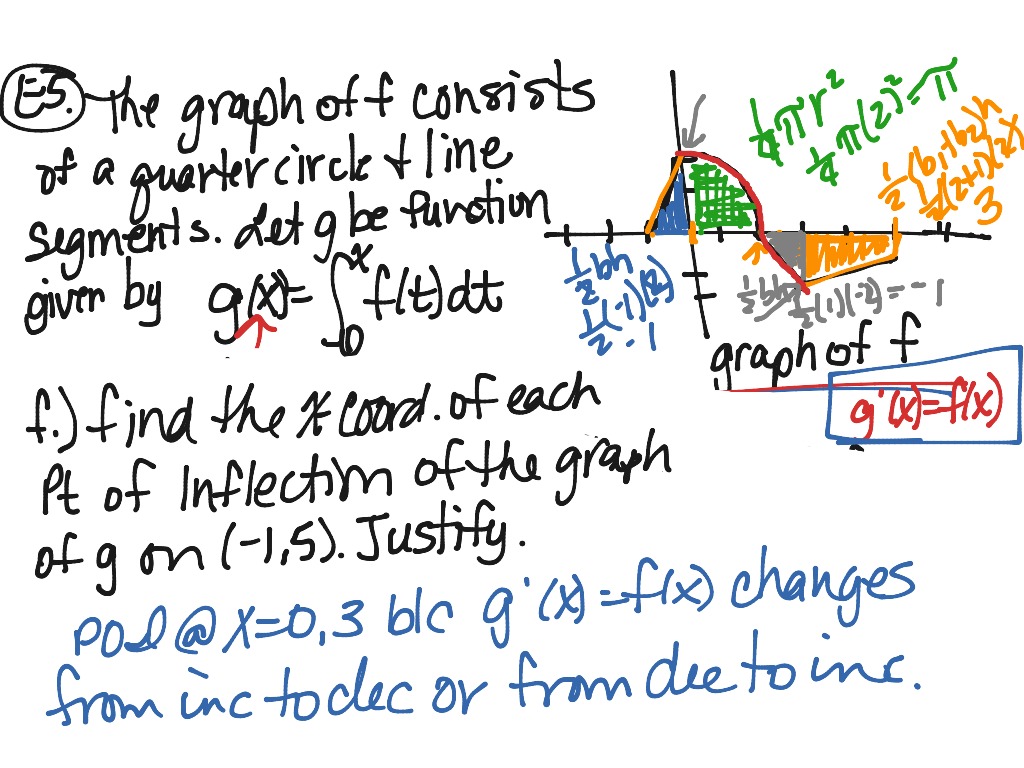 E5. The graph of f consists
of a quarter circle + line
segments. Let g be function
given by g(x)=∫₀ˣ f(t)dt
f.) find the x coord. of each
Pt of Inflection of the graph
of g on (-1,5). Justify.
POI @ x=0,3 b/c g'(x)=f(x) changes
from inc to dec or from dec to inc.
1/4 πr²
1/4 π(2)²=π
1/2 (b₁+b₂)h
1/2 (2+1)(2)
3
1/2 bh
1/2 (-1)(2)
-1
1/2 bh
1/2 (1)(-2) = -1
graph of f
g'(x)=f(x)